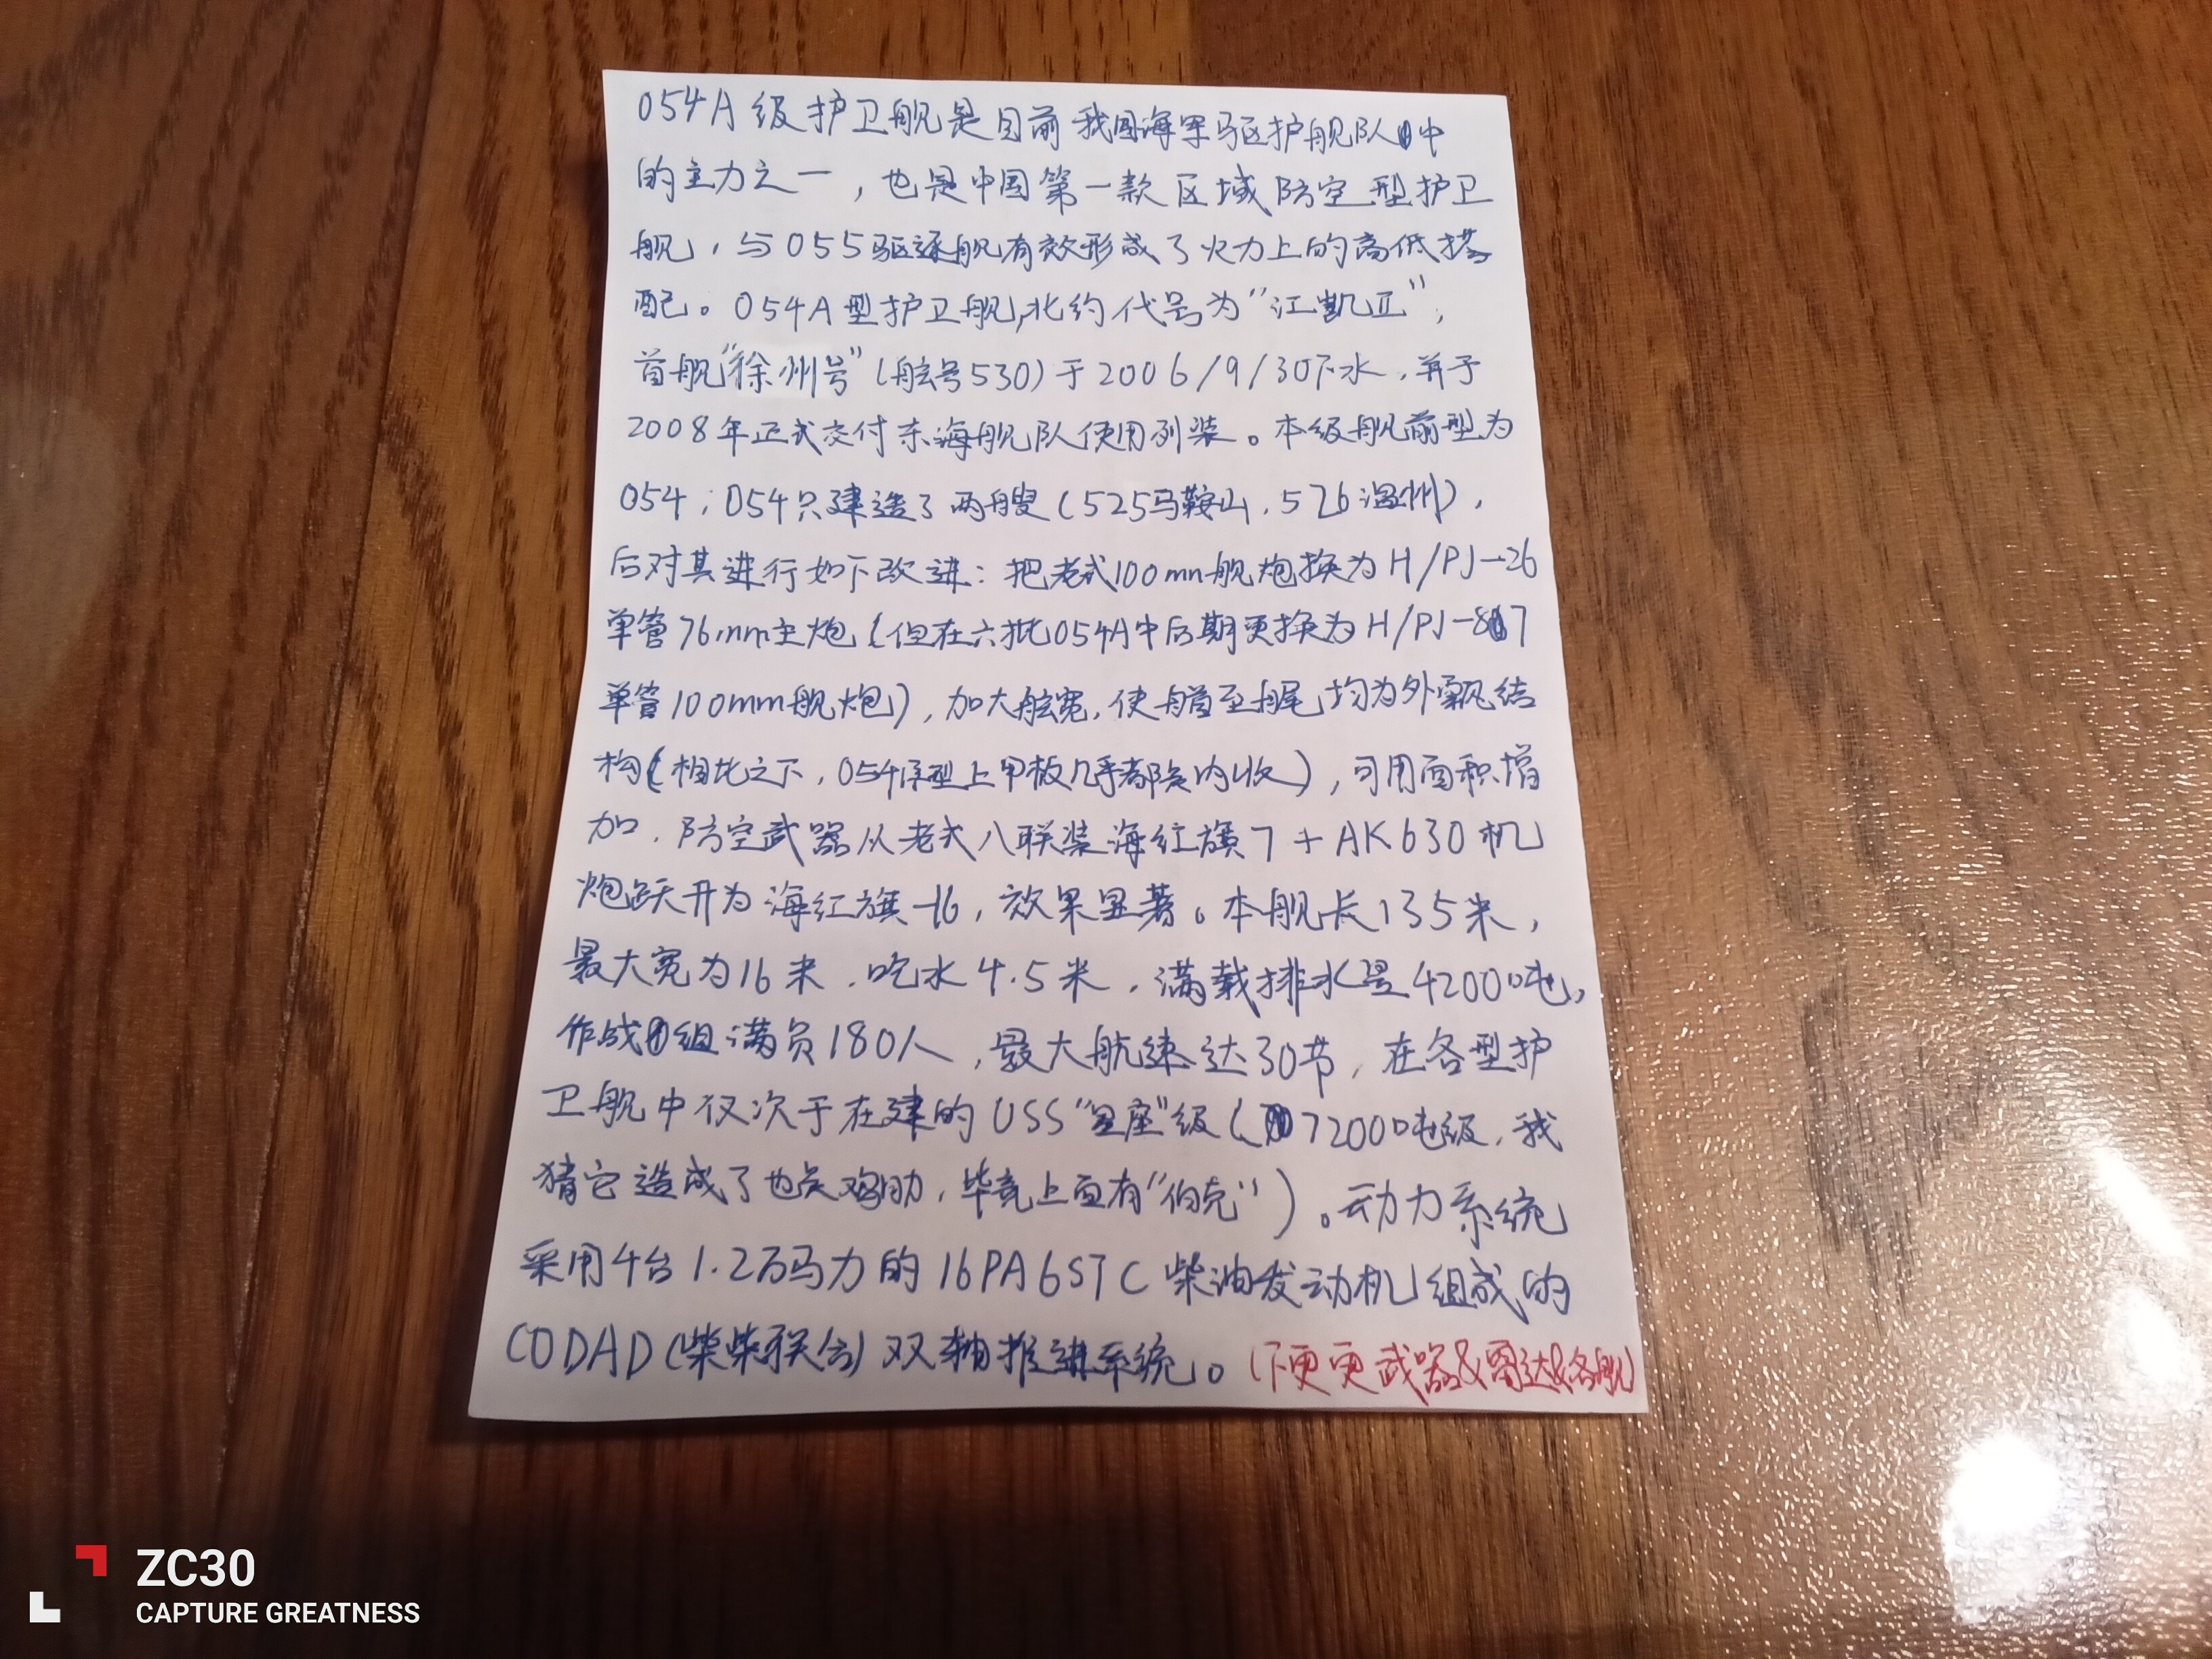 054A级护卫舰是目前我国海军驱护舰队中
的主力之一，也是中国第一款区域防空型护卫
舰，与055驱逐舰有效形成了火力上的高低搭
配。054A型护卫舰，北约代号为“江凯Ⅱ”，
首舰“徐州号”（舷号530）于2006/9/30下水，并于
2008年正式交付东海舰队使用列装。本级舰前型为
054；054只建造了两艘（525马鞍山，526温州），
后对其进行如下改进：把老式100mm舰炮换为H/PJ-26
单管76mm主炮（但在六批054A中后期更换为H/PJ-87
单管100mm舰炮），加大舷宽，使艏至艉均为外飘结
构（相比之下，054原型上甲板几乎都是内收），可用面积增
加，防空武器从老式八联装海红旗7+AK630机
炮跃升为海红旗-16，效果显著。本舰长135米，
最大宽为16米，吃水4.5米，满载排水量4200吨，
作战组满员180人，最大航速达30节，在各型护
卫舰中仅次于在建的USS“星座”级（7200吨级，我
猜它造成了也是鸡肋，毕竟上面有“伯克”）。动力系统
采用4台1.2万马力的16PA6STC柴油发动机组成的
CODAD（柴柴联合）双轴推进系统。（下更更武器&雷达&各舰）
ZC30
CAPTURE GREATNESS